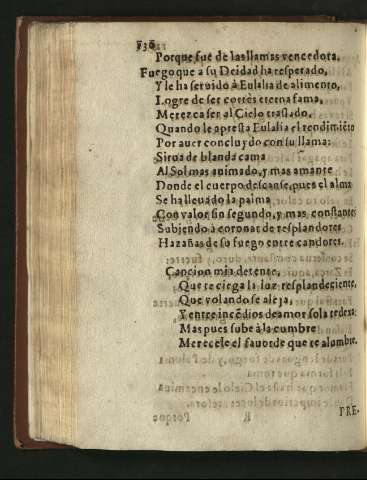 136
Porque fue de las llamas vencedora.
Fuego que a su Deidad ha respetado,
Y le ha seruido à Eulalia de alimento,
Logre de ser cortès eterna fama,
Merezca ser al Cielo trasladado,
Quando le apresta Eulalia el rendimiẽto
Por auer concluydo con su llama:
Sirua de blanda cama
Al Sol mas animado, y mas amante
Donde el cuerpo descanse, pues el alma
Se ha lleuado la palma
Con valor sin segundo, y mas constante
Subiendo à coronar de resplandores
Hazañas de su fuego entre candores.
Cancion mia detente,
Que te ciega la luz resplandeciente,
Que volando se aleja,
Y entre incẽdios de amor sola te dexa:
Mas pues sube à la cumbre
Merecele el fauor de que te alumbre.
PRE-